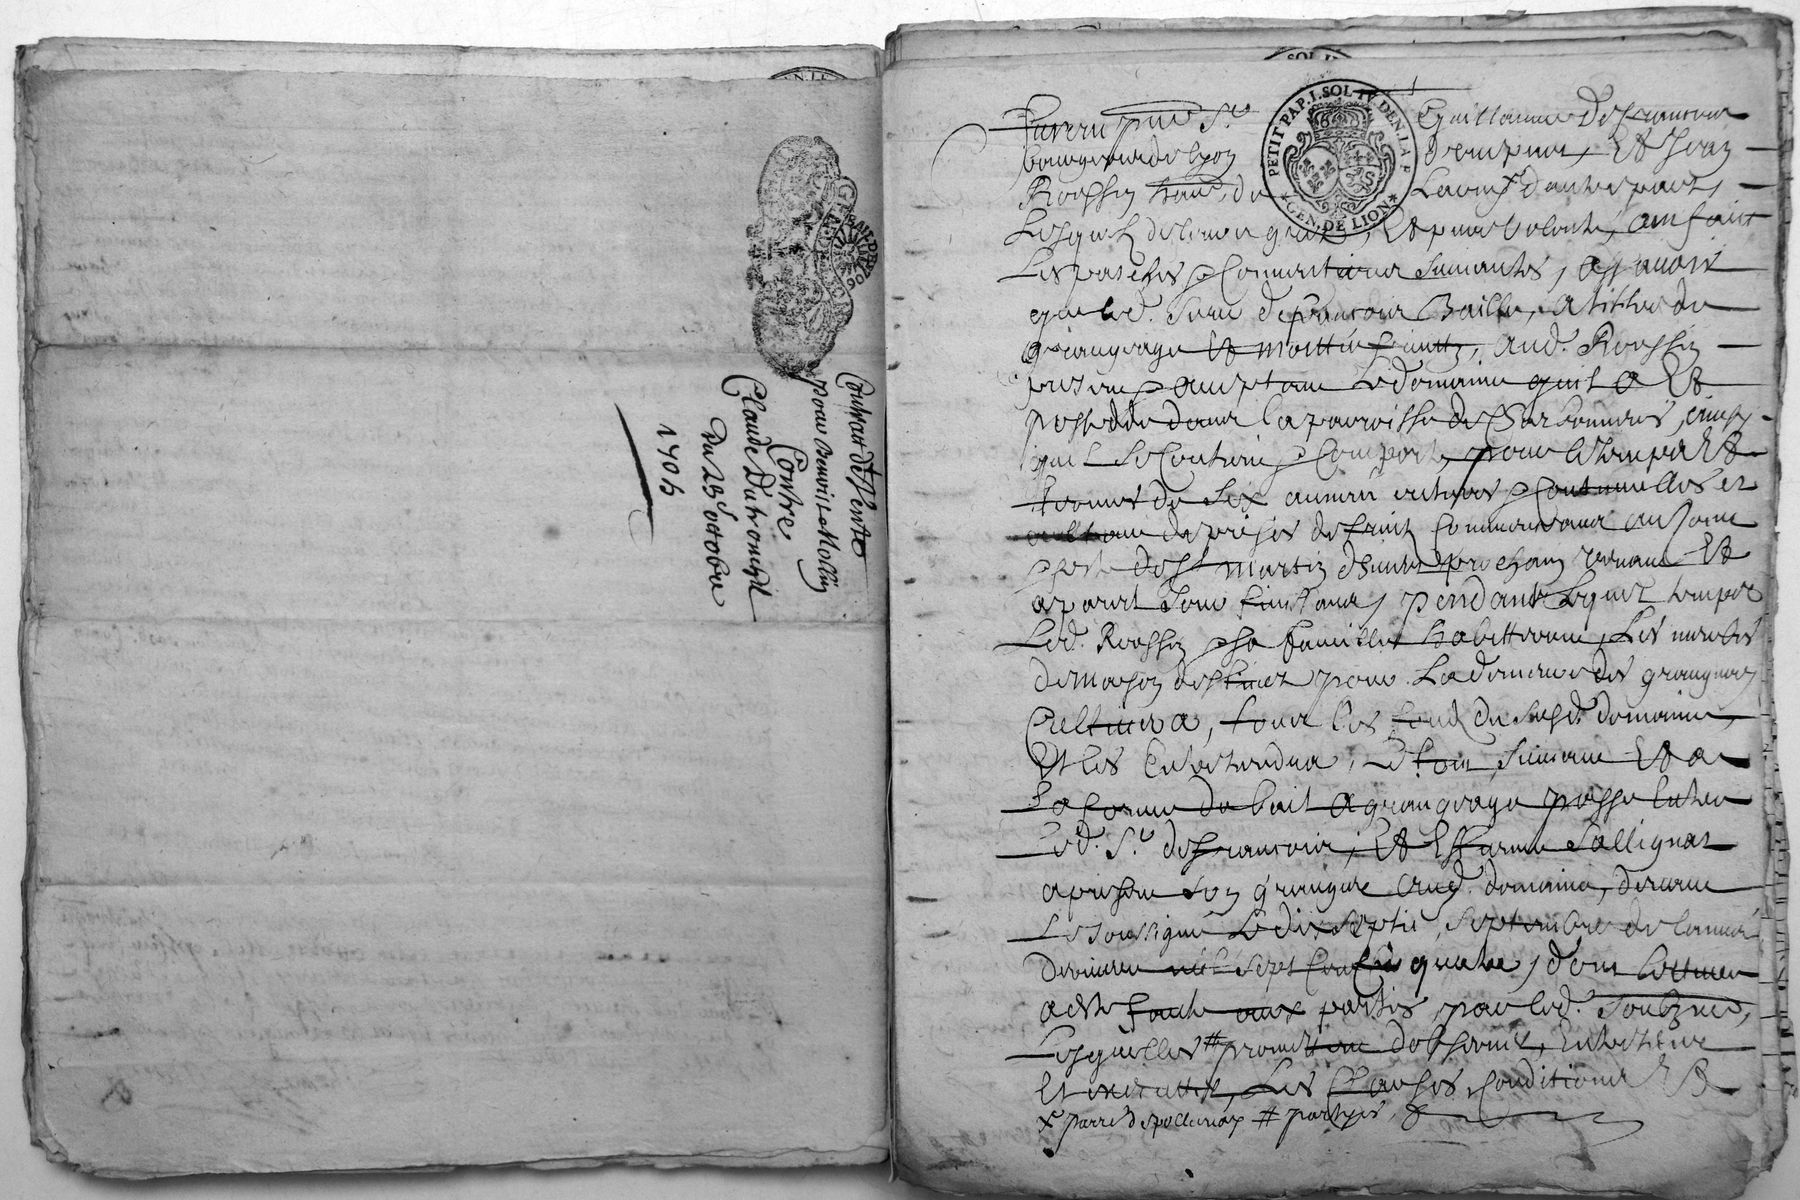 Contrat de Vente
pour Benoit Mollin
Contre
Claude Dutroncy
Du 25e octobre
1705
PETIT PAP. I. SOL IV. DEN. LA F
GEN. DE LION
Furent pnts Sr Guillaume De francoir
bourgeois de Lyon d'une part, Et Jean
Roussin de Lacoux d'autre part,
Lesquels de leur gré, Et pure volonté, ont fait
Les paches & Conventions suivantes, assavoir
que led. Sieur de francoir Baille, a tiltre de
grangeage Et moitié fruitz, aud. Roussin
present & acceptant Le domaine quil a Et
possede dans la parroisse de Charbonnieres, ainsy
quil se Contient & Comporte, pour le temps Et
terme de six années entieres & Continuelles et
de prises de fruitz Commencant au Jour
& feste de St martin d'hiver prochain venant Et
a pareil Jour finissant, pendant lequel temps
Led. Roussin & sa famille habitteront, Les meubles
de maison destinez pour La demeure des grangers
Cultivera, tous les fondz du susd. domaine,
Et les Entretiendra, Le tout suivant Et a
La forme du bail a grangeage passé Entre
Led. Sr. de francoir, Et Estienne Sallignat
a present son granger aud. domaine, devant
Le soussigné Le dix septie septembre de l'année
derniere mil sept Cent quatre, dont lecture
a esté faite aux parties par led. soubzné,
Lesquelles # promettent d'observer, Entretenir
Et executter, Les Clauses, Conditions Et
x parre de pollionay # partyes, &